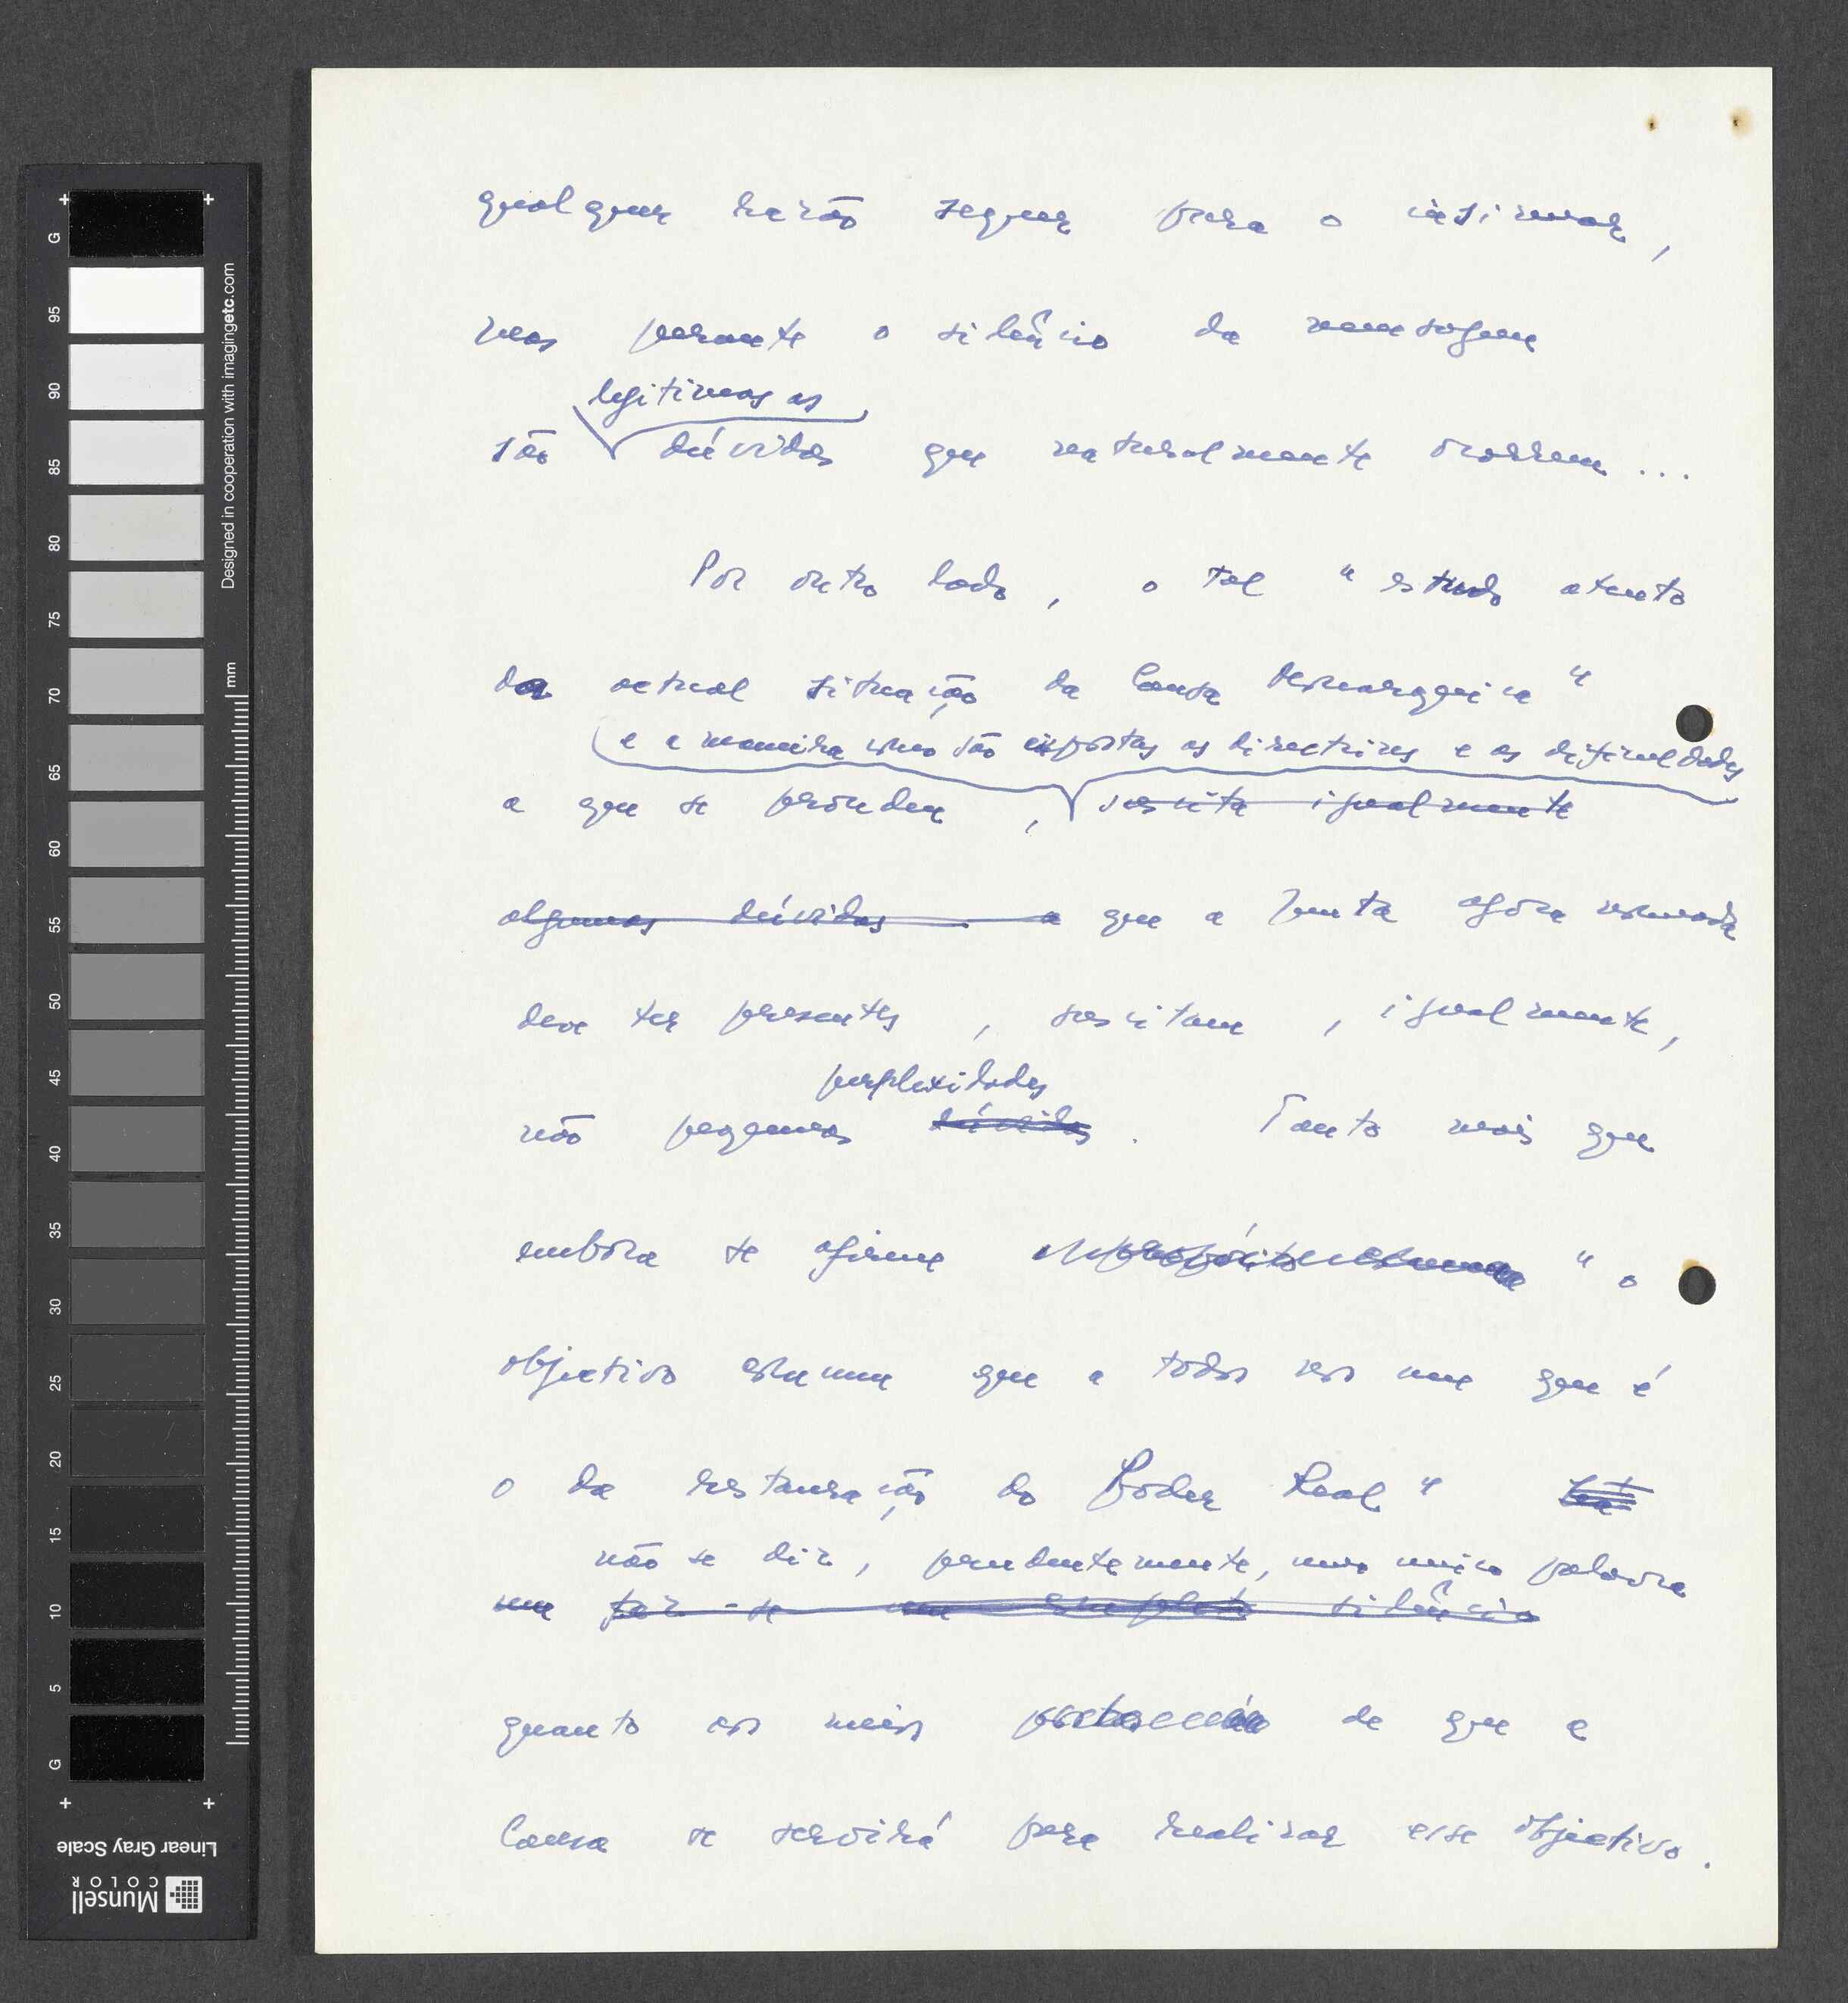 qualquer razão sequer para o insinuar,
mas perante o silêncio da mensagem
legítimas as
são dúvidas que naturalmente ocorrem...
Por outro lado, o tal "estudo atento
da actual situação da Causa Monárquica"
e a maneira como são expostas as directrizes e as dificuldades
a que se procedeu, suscita igualmente
algumas dúvidas a que a Junta agora nomeada
deve ter presentes, suscitam, igualmente,
perplexidades
não pequenas dúvidas. Tanto mais que
embora se afirme "o
objectivo comum que a todos nos une que é
o da restauração do Poder Real"
não se diz, prudentemente, uma única palavra
nem faz-se um completo silêncio
quanto aos meios de que a
Causa se servirá para realizar esse objectivo.
G 95 90 85 80 75 70 65 60 55 50 45 40 35 30 25 20 15 10 5 G
Designed in cooperation with imagingetc.com
mm
Linear Gray Scale
Munsell
COLOR